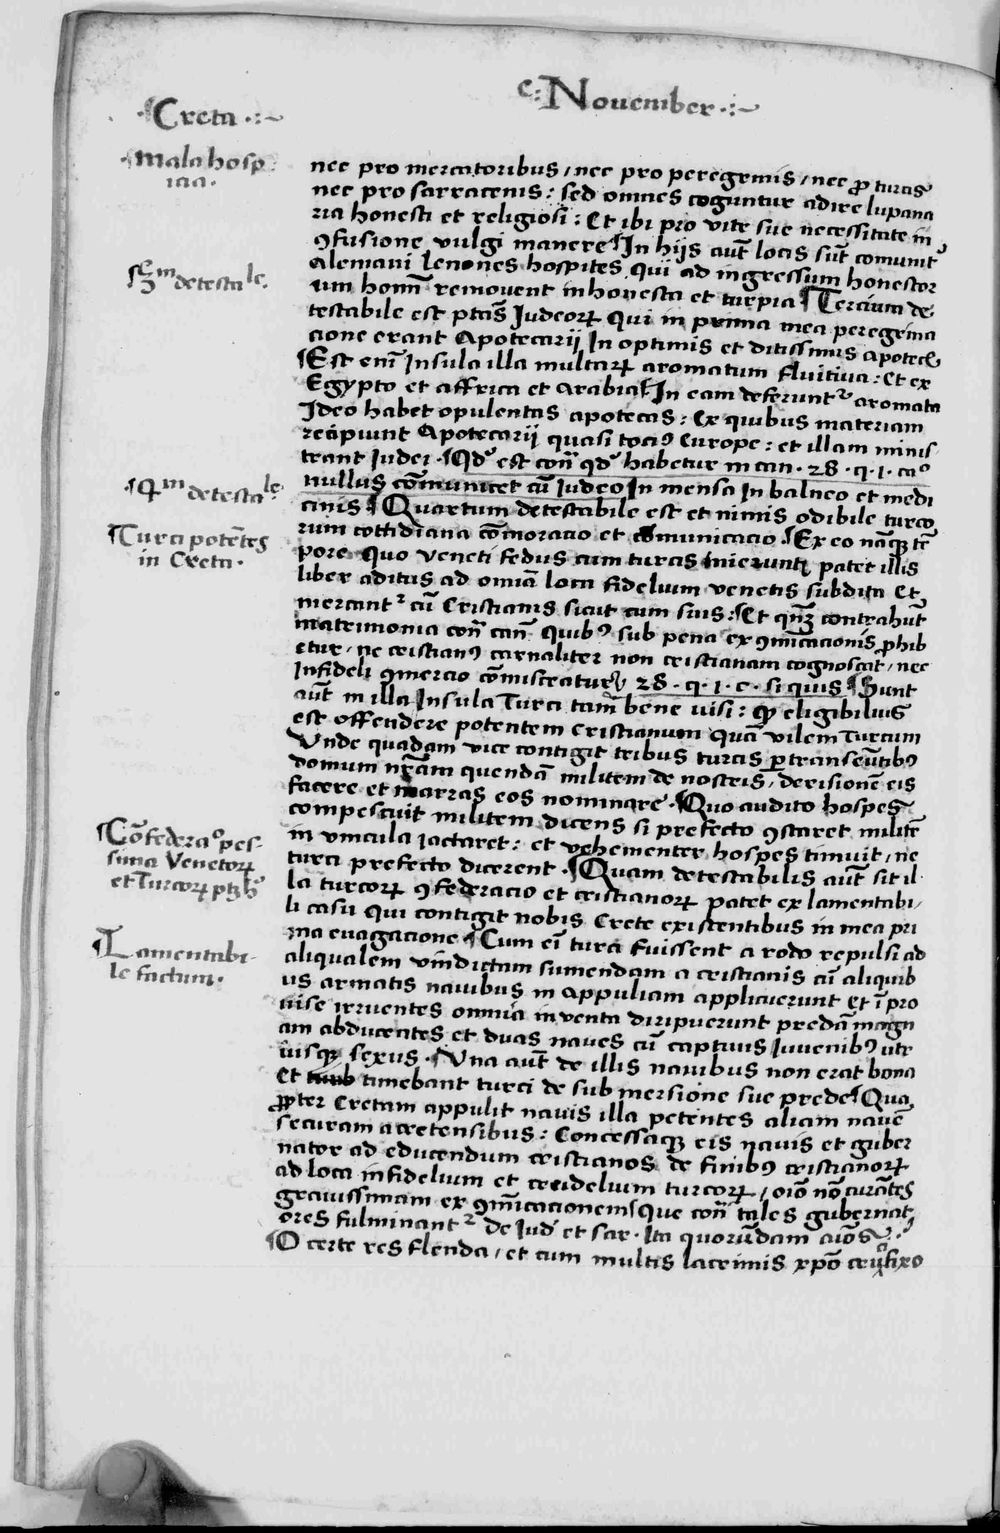 ·Creta·:~
c:November·:~
·mala hosp
icia·
nec pro mercatoribus / nec pro peregrinis / nec ꝓ turcis
nec pro sarracenis : sed omnes coguntur adire lupana
ria honesti et religiosi : Et ibi pro vite sue necessitate in
ꝯfusione vulgi manere ¶In hijs aut̄ locis sūt comunit̾
¶3m detestale·
Alemani lenones hospites qui ad ingressum honestor
um homī removent inhonesta et turpia ¶Tercium de
testabile est ptās Iudeoꝝ Qui in prima mea peregrina
cione erant Apotecarij In optimis et ditissimis apotecꝭ
¶Est enī Insula illa multaꝝ aromatum fluitiua : Et ex
Egypto et affrica et Arabia ¶In eam deferunt᷑ aromata
Ideo habet opulentas apotecas : Ex quibus materiam
recipiunt Apotecarij quasi tociꝰ Europe : et illam minis
trant Iudei ·¶Qd̄ est con̄ qd̄ habetur in can · 28 · q · 1 · cao
·¶4m detestale·
nullus cōmunicet cū Iudeo In mensa In balneo et medi
cinis ¶Quartum detestabile est et nimis odibile turco
¶Turci potētes
in Creta·
rum cottidiana cōmoracio et comunicacio ¶Ex eo nāqꝫ tē
pore Quo Veneti fedus cum turcis inierunt patet illis
liber aditus ad omīa loca fidelium venetis subdita Et
mercant᷑ cū Cristianis sicut cum suis ·¶Et qn̄qꝫ contrahūt
matrimonia con̄ can̄ Quibꝰ sub pena exꝯmīcacionis ꝓhib
etur / ne cristianꝰ carnaliter non cristianam cognoscat / nec
Infideli ꝯmercio cōmisceatur 28 · q · 1 · c · si quis ¶Sunt
aūt in illa Insula Turci tam̄ bene uisi : qꝫ eligibilius
est offendere potentem cristianum quā vilem Turcum
Vnde quadam vice contigit tribus turcis ꝑtranseūtibꝰ
domum nr̄am quendā militem de nostris / derisionē eis
facere et marras eos nominare ·¶Quo audito hospes
¶Cōfederaco pes-
sima Venetoꝝ
et Turcoꝝ
compescuit militem dicens si prefecto ꝯstaret militē
in vincula iactaret : et vehementer hospes timuit / ne
turci prefecto dicerent ·¶Quam detestabilis aūt sit il-
la turcoꝝ ꝯfederacio et cristianoꝝ patet ex lamentabi,
li casu qui contigit nobis Crete existentibus in mea pri
¶Lamentabi-
le factum·
ma evagacione ¶Cum ei̅ turci fuissent a rodo repulsi ad
aliqualem vindictam sumendam a cristianis cū aliquib
us armatis navibus in Appuliam applicuerunt Et ī pro
uise irruentes omnia inventa diripuerunt predā magn
am abducentes et duas naves cū captivis Iuvenibꝰ utr
iusqꝫ sexus ·¶Vna aūt de illis navibus non erat bona
et timebant turci de submersione sue prede ¶Qua
ꝓpter Cretam appulit navis illa petentes aliam navē
securam a cretensibus : Concessaqꝫ eis navis et guber
nator ad educendum cristianos de finibꝰ cristianoꝝ
ad loca infidelium et crudelium turcoꝝ / oīo nō curātes
gravissimam exꝯmīcacionem Que con̄ tales gubernat
ores fulminant᷑ de Iud̾ et sar · Ita quorūdam
¶O certe res flenda / et cum multis lacrimis xpō crucifixo